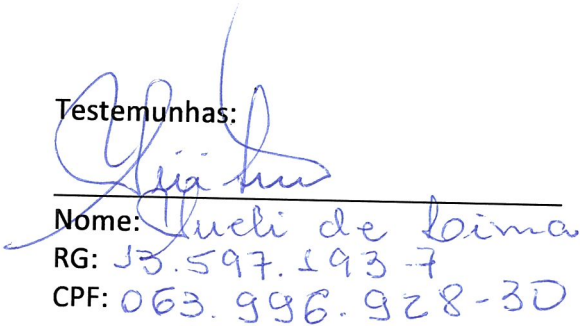 Testemunhas:
Nome: Sueli de Lima
RG: 13.597.193-7
CPF: 063.996.928-30